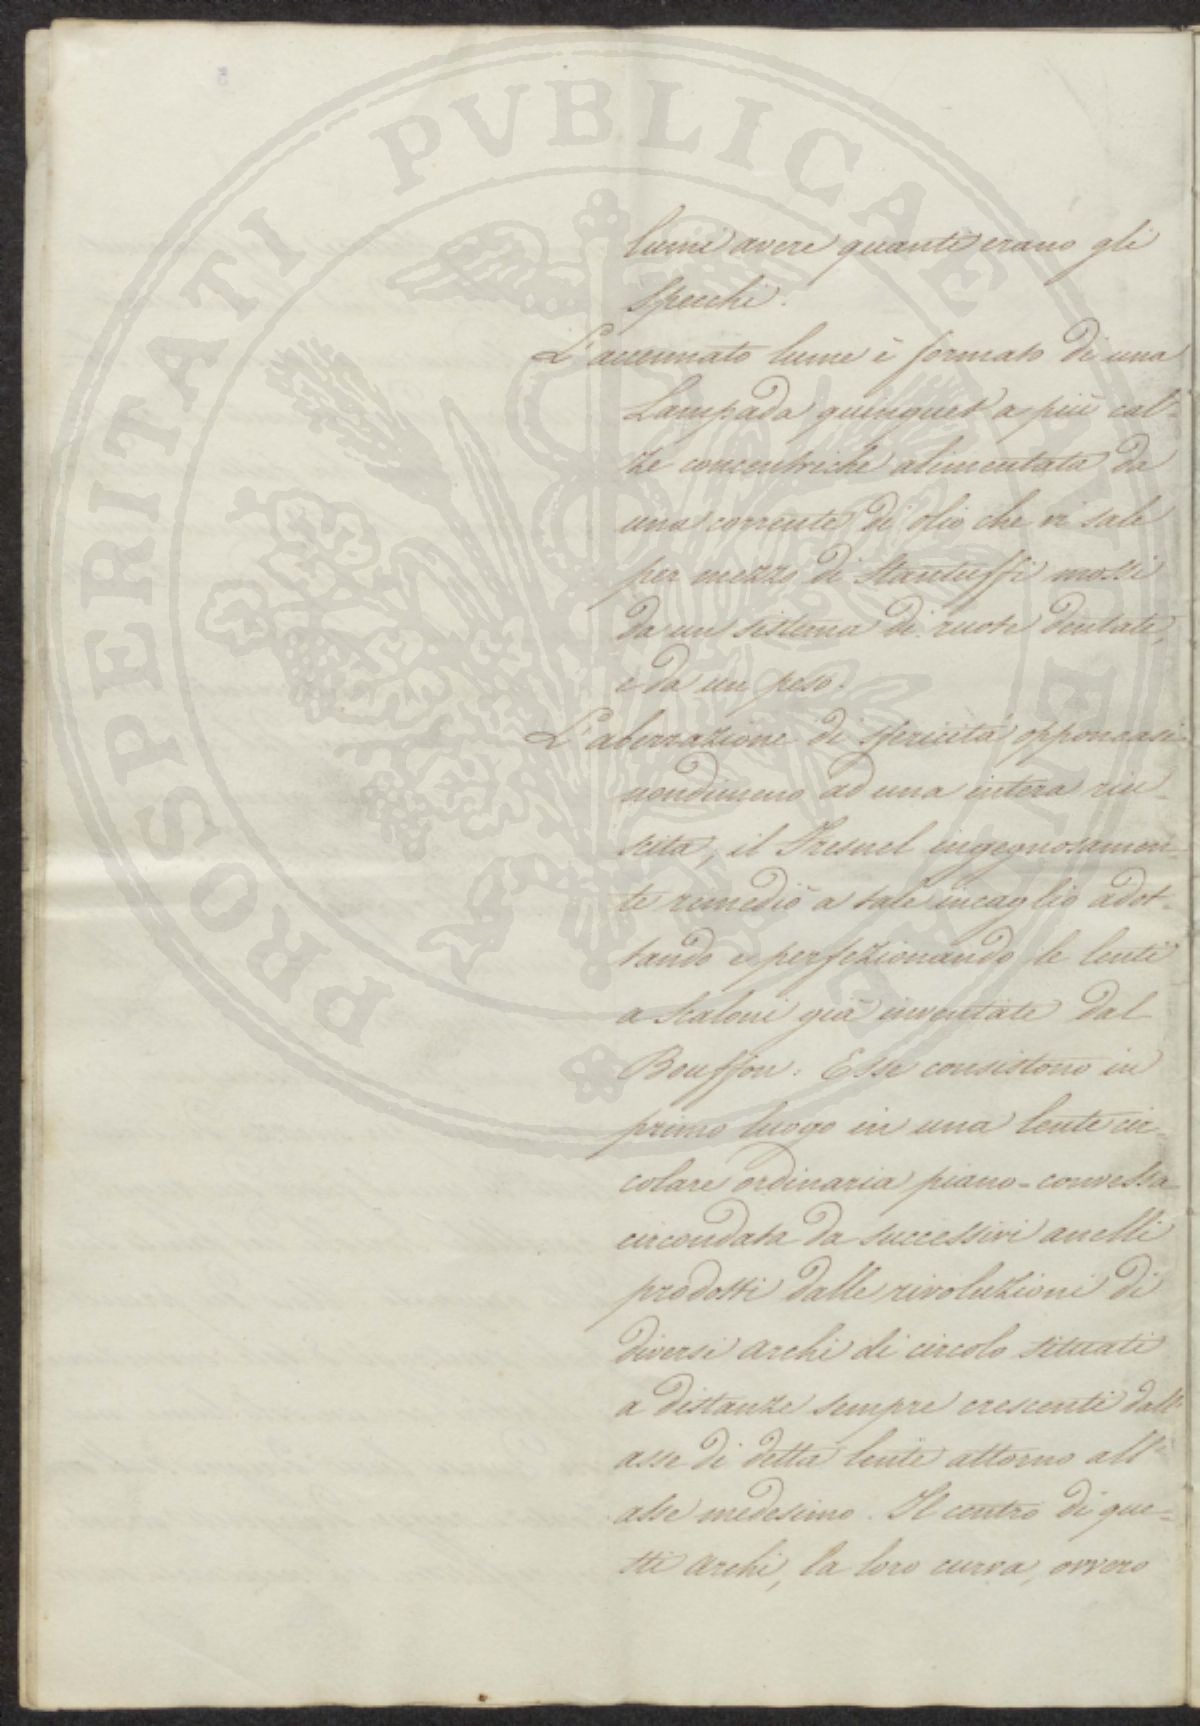 PROSPERITATI PVBLICAE
lumi avere quanti erano gli
specchi.
L'accennato lume è formato di una
Lampada quinquet a più cal-
ze concentriche alimentata da
una corrente di olio che vi sale
per mezzo di stantuffi mossi
da un sistema di ruote dentate,
e da un peso.
L'aberrazione di sfericità opponeasi
nondimeno ad una intera riu-
scita; il Fresnel ingegnosamen-
te rimediò a tale incaglio adot-
tando e perfezionando le lenti
a scaloni già inventate dal
Bouffon: Esse consistono in
primo luogo in una lente cir-
colare ordinaria piano-convessa
circondata da successivi anelli
prodotti dalle rivoluzioni di
diversi archi di circolo situati
a distanze sempre crescenti dall'
asse di detta lente attorno all'
asse medesimo. Il centro di que-
sti archi, la loro curva, ovvero